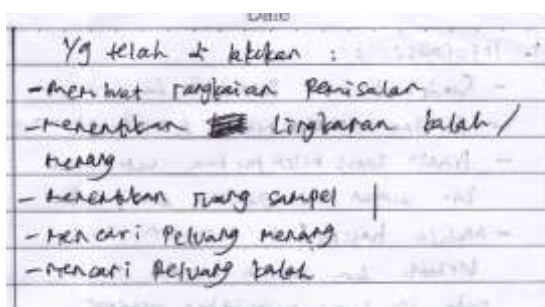 Date
Yg telah di lakukan :
- Membuat rangkaian Pemisalan
- Menentukan Lingkaran kalah /
menang
- Menentukan ruang sampel
- Mencari Peluang menang
- Mencari Peluang kalah